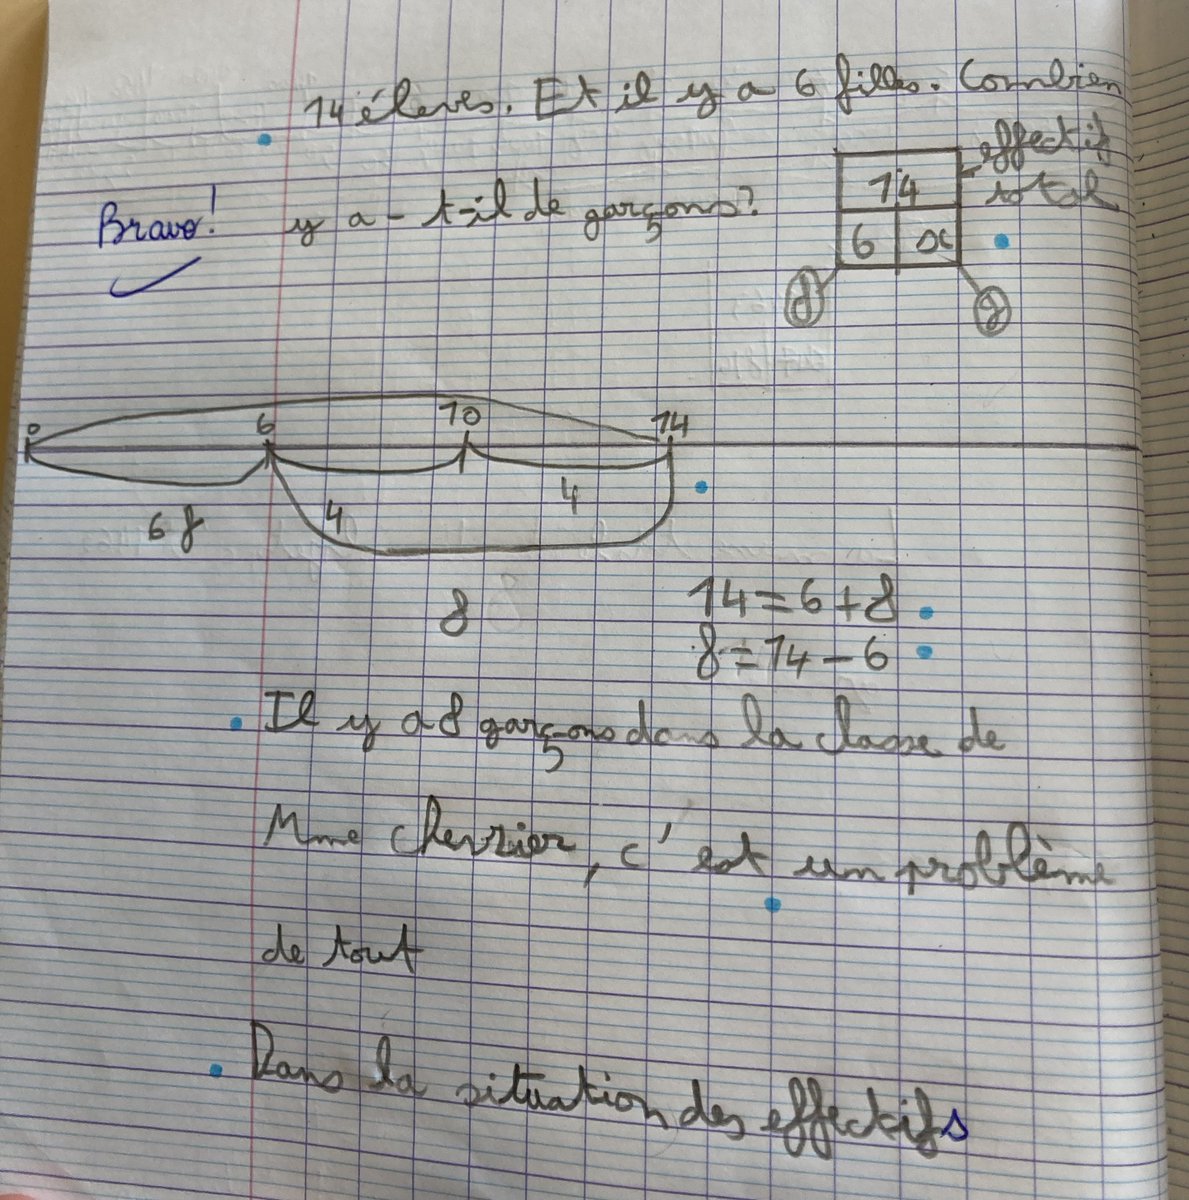 14 élèves. Et il y a 6 filles. Combien
y a-t-il de garçons?
Bravo!
effectif
total
14
6 x
f g
0 6 10 14
6 f 4 4
8
14 = 6 + 8
8 = 14 - 6
Il y a 8 garçons dans la classe de
Mme chevrier, c'est un problème
de tout
Dans la situation des effectifs